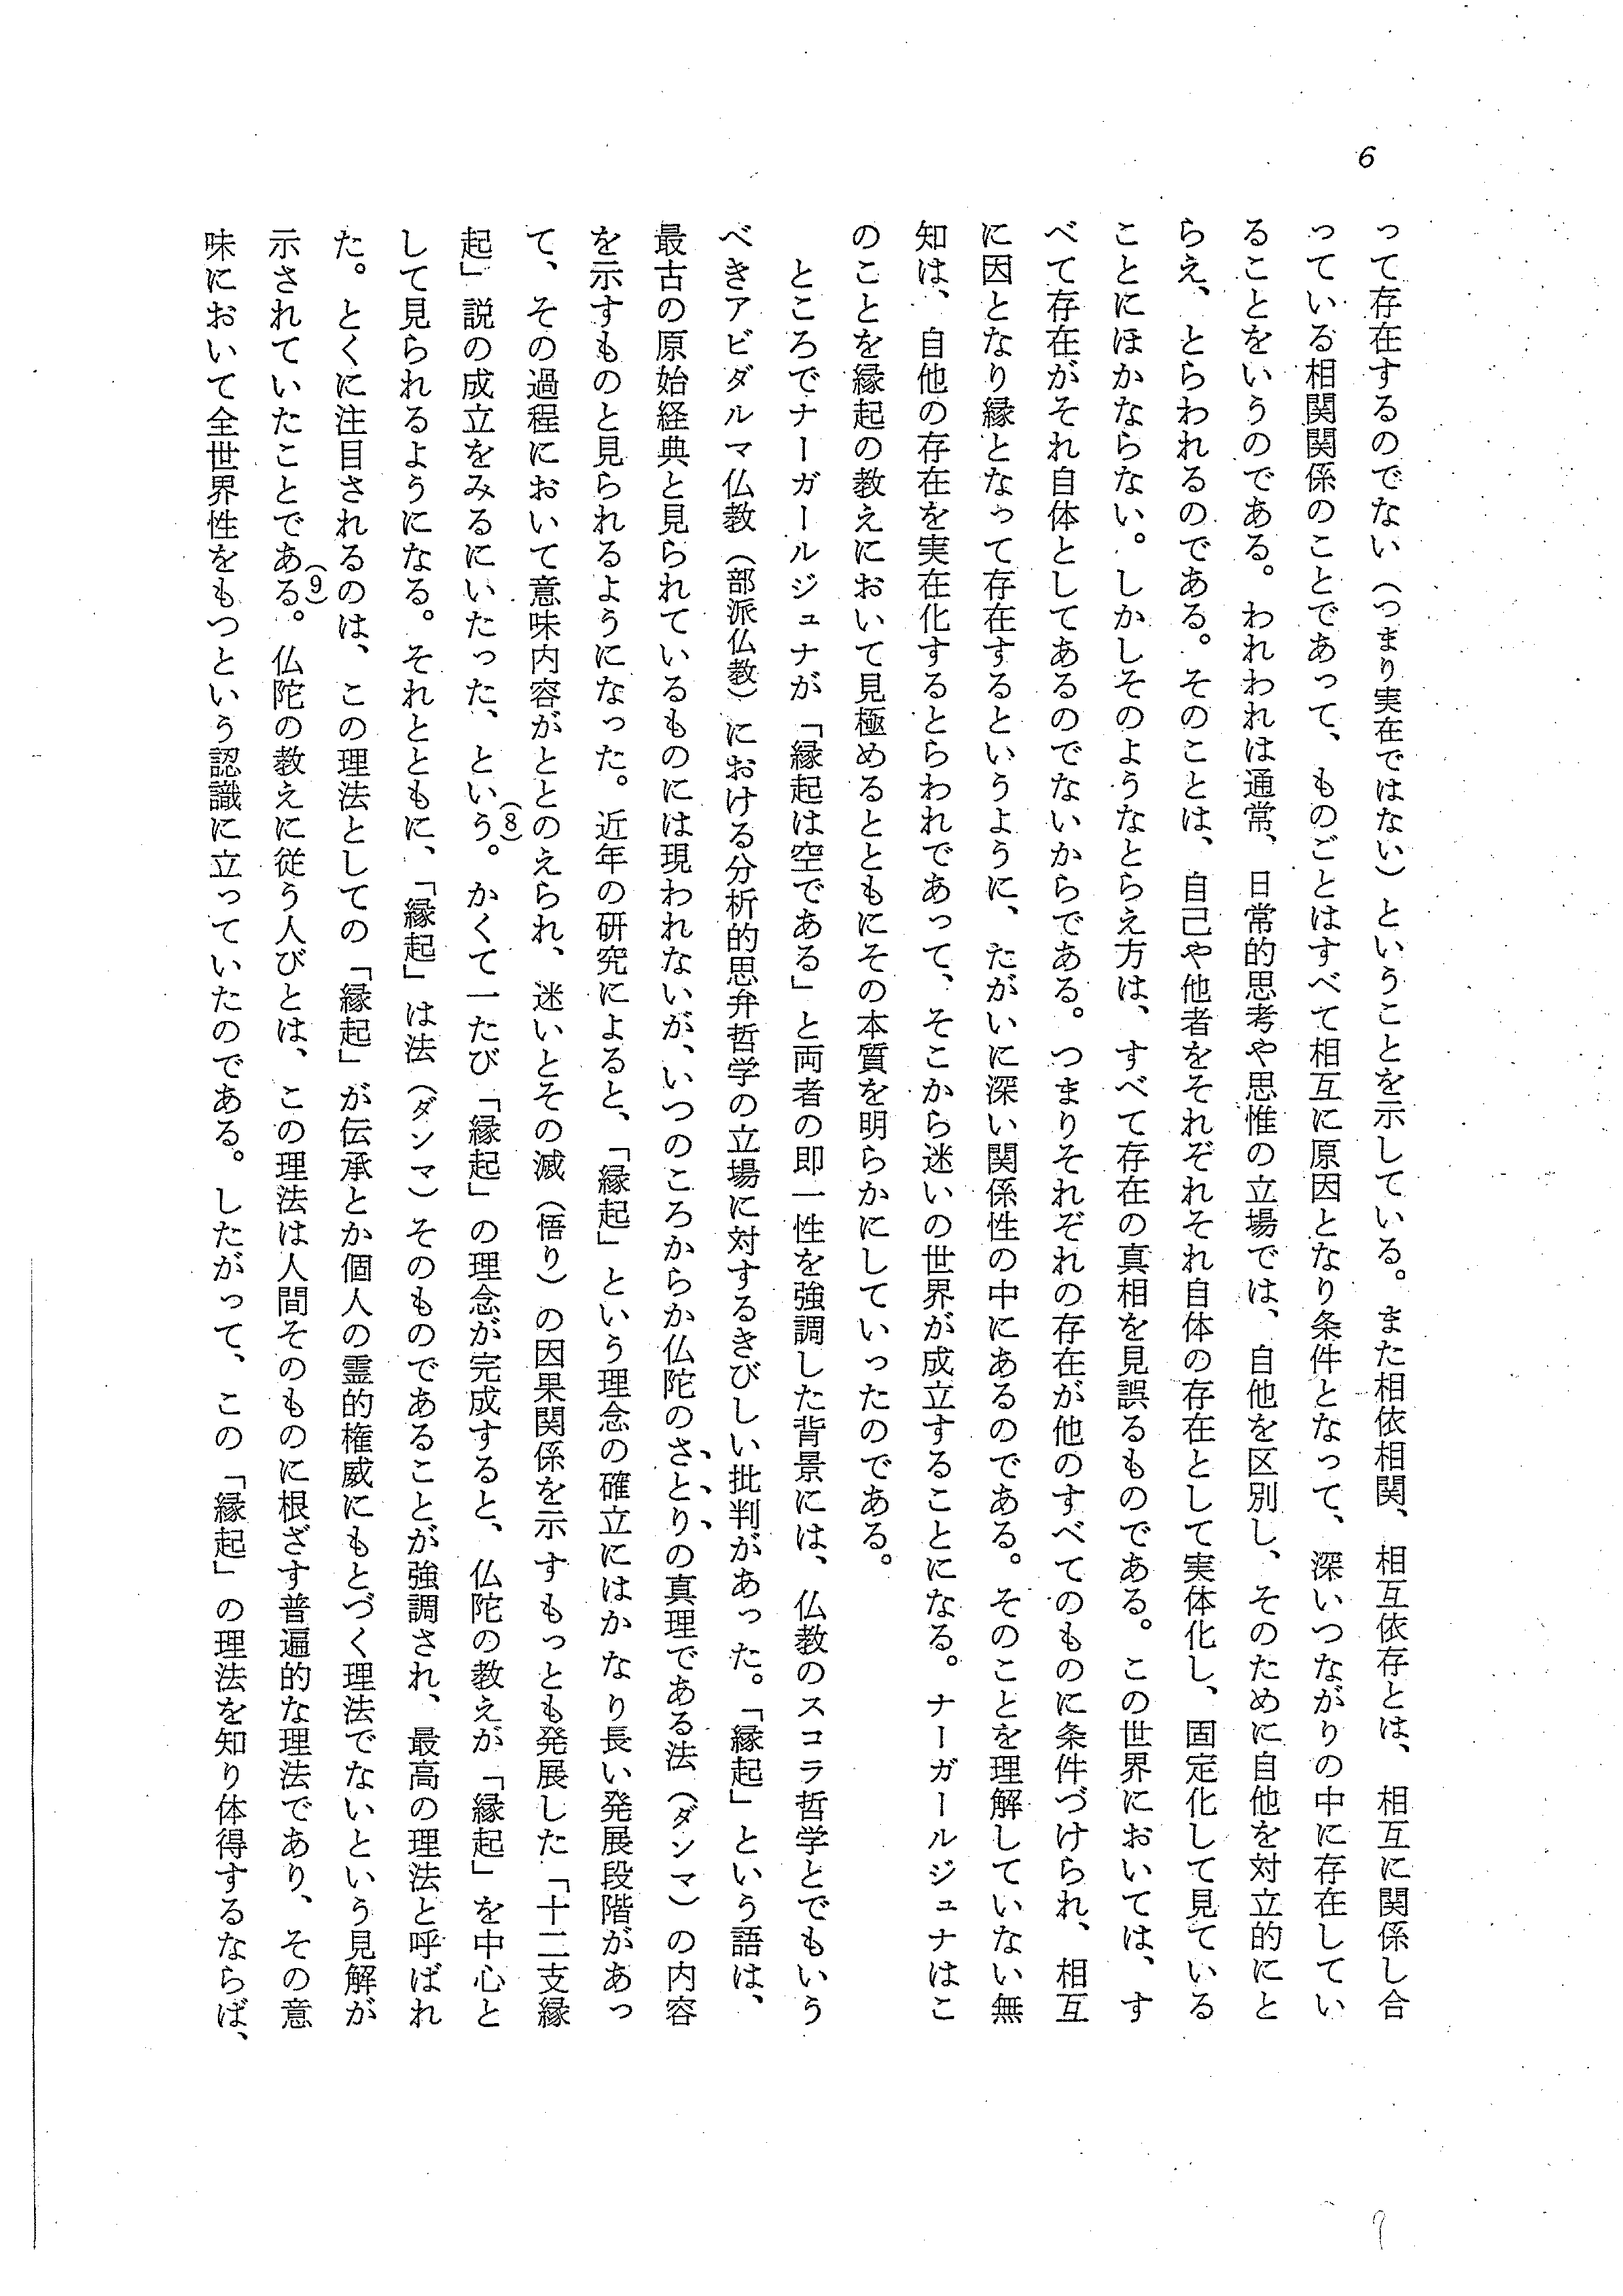 6
って存在するのでない（つまり実在ではない）ということを示している。また相依相関、相互依存とは、相互に関係し合
っている相関関係のことであって、ものごとはすべて相互に原因となり条件となって、深いつながりの中に存在してい
ることをいうのである。われわれは通常、日常的思考や思惟の立場では、自他を区別し、そのために自他を対立的にと
らえ、とらわれるのである。そのことは、自己や他者をそれぞれそれ自体の存在として実体化し、固定化して見ている
ことにほかならない。しかしそのようなとらえ方は、すべて存在の真相を見誤るものである。この世界においては、す
べて存在がそれ自体としてあるのでないからである。つまりそれぞれの存在が他のすべてのものに条件づけられ、相互
に因となり縁となって存在するというように、たがいに深い関係性の中にあるのである。そのことを理解していない無
知は、自他の存在を実在化するとらわれであって、そこから迷いの世界が成立することになる。ナーガールジュナはこ
のことを縁起の教えにおいて見極めるとともにその本質を明らかにしていったのである。
ところでナーガールジュナが「縁起は空である」と両者の即一性を強調した背景には、仏教のスコラ哲学とでもいう
べきアビダルマ仏教（部派仏教）における分析的思弁哲学の立場に対するきびしい批判があった。「縁起」という語は、
最古の原始経典と見られているものには現われないが、いつのころからか仏陀のさとりの真理である法（ダンマ）の内容
を示すものと見られるようになった。近年の研究によると、「縁起」という理念の確立にはかなり長い発展段階があっ
て、その過程において意味内容がととのえられ、迷いとその滅（悟り）の因果関係を示すもっとも発展した「十二支縁
起」説の成立をみるにいたった、という（8）。かくて一たび「縁起」の理念が完成すると、仏陀の教えが「縁起」を中心と
して見られるようになる。それとともに、「縁起」は法（ダンマ）そのものであることが強調され、最高の理法と呼ばれ
た。とくに注目されるのは、この理法としての「縁起」が伝承とか個人の霊的権威にもとづく理法でないという見解が
示されていたことである（9）。仏陀の教えに従う人びとは、この理法は人間そのものに根ざす普遍的な理法であり、その意
味において全世界性をもつという認識に立っていたのである。したがって、この「縁起」の理法を知り体得するならば、